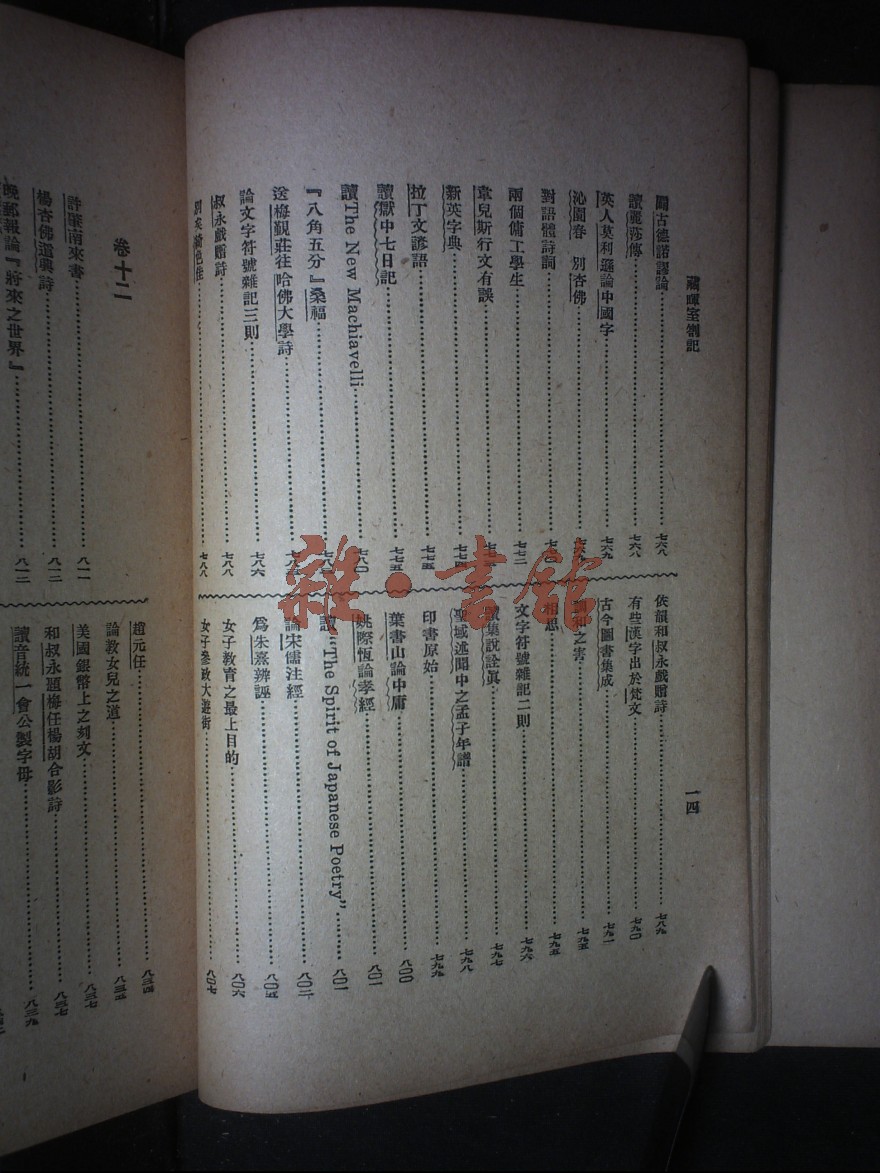 藏暉室劄記
一四
闢古德諾謬論……七六八
讀麗莎傳……七六八
英人莫利遜論中國字……七六九
沁園春　別杏佛……七六九
對語體詩詞……七七〇
兩個傭工學生……七七二
韋兒斯行文有誤
新英字典……七七四
拉丁文諺語……七七五
讀獄中七日記……七七五
讀The New Machiavelli……七八〇
『八角五分』桑福
送梅覲莊往哈佛大學詩
論文字符號雜記三則……七八六
叔永戲贈詩……七八八
別英倫色佳……七八八
依韻和叔永戲贈詩……七八九
有些漢字出於梵文……七九〇
古今圖書集成……七九一
調和之害……七九五
相思……七九五
文字符號雜記二則……七九六
讀集說詮真……七九七
聖域述聞中之孟子年譜……七九八
印書原始……七九九
葉書山論中庸……八〇〇
姚際恆論孝經……八〇一
讀“The Spirit of Japanese Poetry”……八〇一
論宋儒注經……八〇三
為朱熹辨誣……八〇五
女子教育之最上目的……八〇六
女子參政大遊街……八〇七
卷十二
許肇南來書……八一一
楊杏佛遣興詩……八一二
晚郵報論『將來之世界』……八一二
趙元任……八三四
論教女兒之道……八三五
美國銀幣上之刻文……八三七
和叔永題梅任楊胡合影詩……八三七
讀音統一會公製字母……八三九
雜·書館